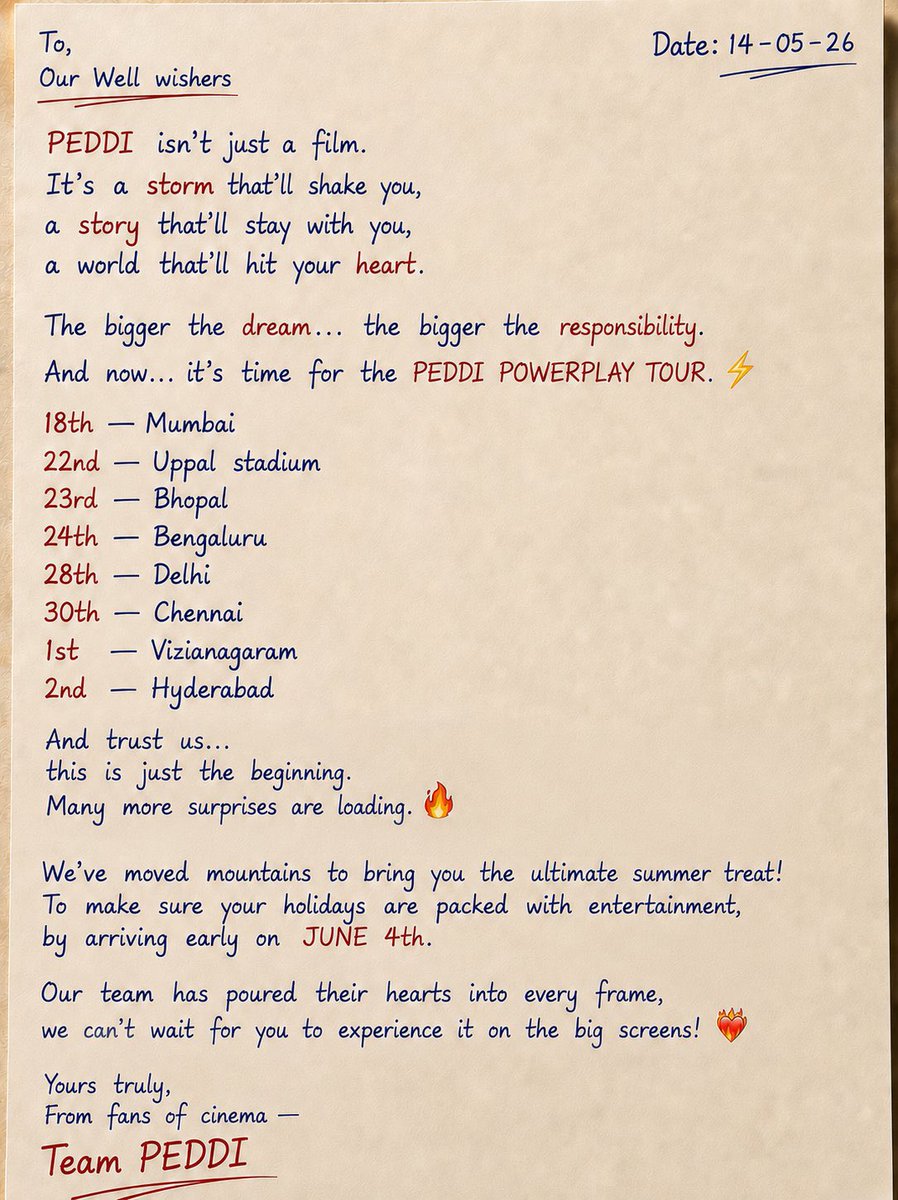 To,
Our Well wishers
Date: 14-05-26
PEDDI isn't just a film.
It's a storm that'll shake you,
a story that'll stay with you,
a world that'll hit your heart.
The bigger the dream... the bigger the responsibility.
And now... it's time for the PEDDI POWERPLAY TOUR. ⚡
18th — Mumbai
22nd — Uppal stadium
23rd — Bhopal
24th — Bengaluru
28th — Delhi
30th — Chennai
1st — Vizianagaram
2nd — Hyderabad
And trust us...
this is just the beginning.
Many more surprises are loading. 🔥
We've moved mountains to bring you the ultimate summer treat!
To make sure your holidays are packed with entertainment,
by arriving early on JUNE 4th.
Our team has poured their hearts into every frame,
we can't wait for you to experience it on the big screens! ❤️‍🔥
Yours truly,
From fans of cinema —
Team PEDDI